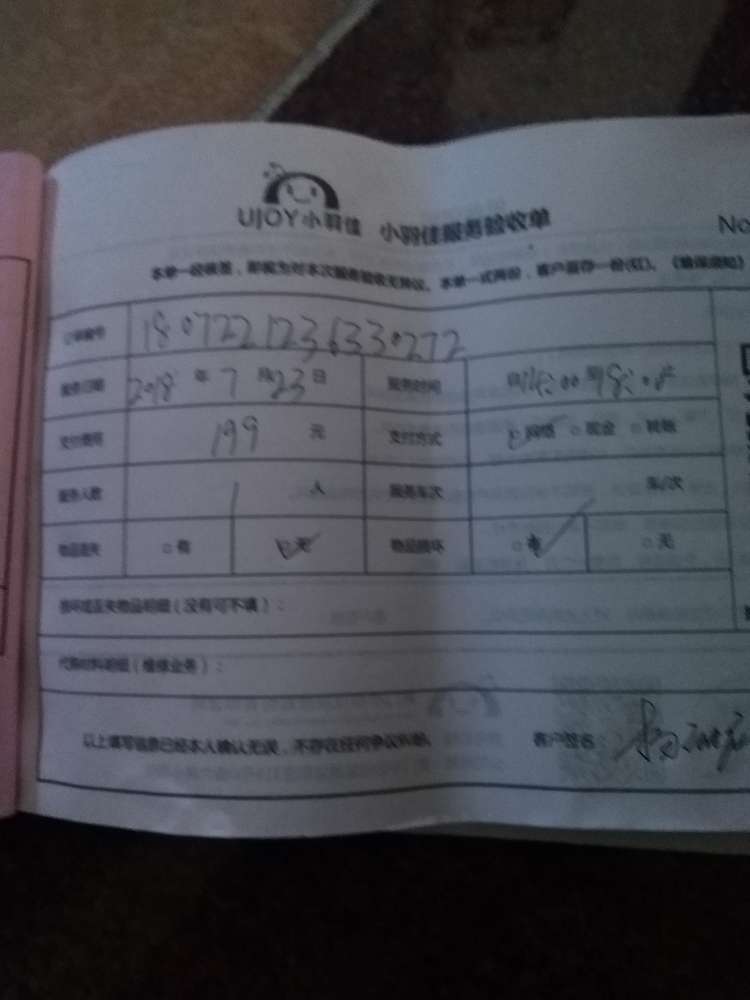 UJOY小羽佳 小羽佳服务验收单 No
本单一经核签，即视为对本次服务验收无异议。本单一式两份，客户留存一份(红)。
订单编号 1807221236330272
服务日期 2018 年 7 月 23 日 服务时间
支付费用 199 元 支付方式 网络 □ 现金 □ 转账
服务人数 1 人 服务车次 车/次
物品丢失 □ 有 ☑ 无 物品损坏 □ 有 □ 无
损坏或丢失物品明细（没有可不填）：
代购材料明细（维修业务）：
以上填写信息已经本人确认无误，不存在任何争议纠纷。 客户签名：